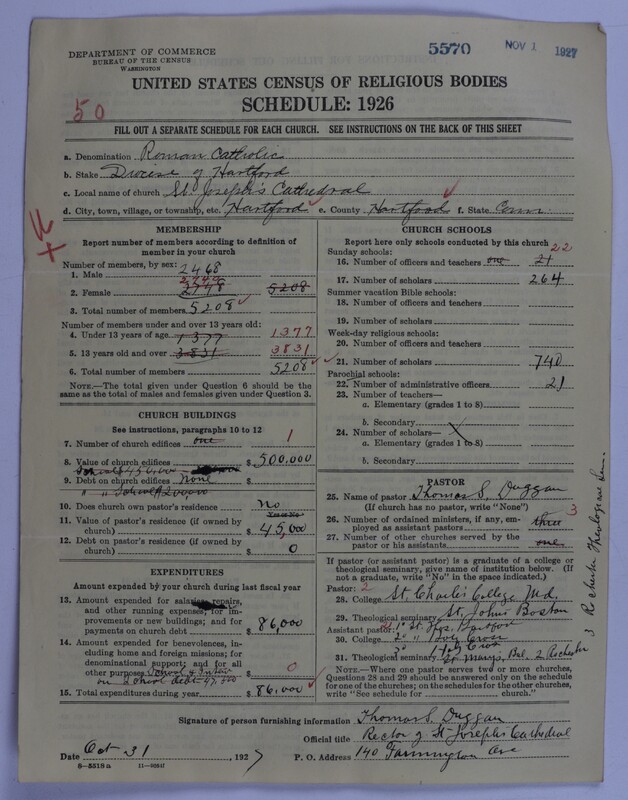 DEPARTMENT OF COMMERCE
BUREAU OF THE CENSUS
WASHINGTON
5570 NOV 1 1927
UNITED STATES CENSUS OF RELIGIOUS BODIES
SCHEDULE: 1926
50
FILL OUT A SEPARATE SCHEDULE FOR EACH CHURCH. SEE INSTRUCTIONS ON THE BACK OF THIS SHEET
a. Denomination Roman Catholic
b. Stake Diocese of Hartford
c. Local name of church St. Joseph's Cathedral
d. City, town, village, or township, etc. Hartford e. County Hartford f. State Conn.
MEMBERSHIP
Report number of members according to definition of member in your church
Number of members, by sex:
1. Male 2468
2. Female 2740 5208
3. Total number of members 5208
Number of members under and over 13 years old:
4. Under 13 years of age 1377 1377
5. 13 years old and over 3831 3831
6. Total number of members 5208
NOTE.—The total given under Question 6 should be the same as the total of males and females given under Question 3.
CHURCH BUILDINGS
See instructions, paragraphs 10 to 12
7. Number of church edifices one 1
8. Value of church edifices $ 500,000
9. Debt on church edifices None $
" " School $200000
10. Does church own pastor's residence? No
Yes or No
11. Value of pastor's residence (if owned by church) $ 45,000
12. Debt on pastor's residence (if owned by church) $ 0
EXPENDITURES
Amount expended by your church during last fiscal year
13. Amount expended for salaries, repairs, and other running expenses; for improvements or new buildings; and for payments on church debt $ 86,000
14. Amount expended for benevolences, including home and foreign missions; for denominational support; and for all other purposes $ 0
15. Total expenditures during year $ 86,000
CHURCH SCHOOLS
Report here only schools conducted by this church
Sunday schools:
16. Number of officers and teachers one 21 22
17. Number of scholars 264
Summer vacation Bible schools:
18. Number of officers and teachers
19. Number of scholars
Week-day religious schools:
20. Number of officers and teachers
21. Number of scholars 740
Parochial schools:
22. Number of administrative officers 21
23. Number of teachers—
a. Elementary (grades 1 to 8)
b. Secondary
24. Number of scholars—
a. Elementary (grades 1 to 8)
b. Secondary
PASTOR
25. Name of pastor Thomas S. Duggan
(If church has no pastor, write "None")
26. Number of ordained ministers, if any, employed as assistant pastors three 3
27. Number of other churches served by the pastor or his assistants one
If pastor (or assistant pastor) is a graduate of a college or theological seminary, give name of institution below. (If not a graduate, write "No" in the space indicated.)
Pastor: 2
28. College St. Charles College Md.
29. Theological seminary St. Johns Boston
Assistant pastor:
30. College 2º " Holy Cross
3º Holy Cross
31. Theological seminary St Mary's, Bal. 2 Rochester
3 Rochester Theological Sem.
NOTE.—Where one pastor serves two or more churches, Questions 28 and 29 should be answered only on the schedule for one of the churches; on the schedules for the other churches, write "See schedule for church."
Signature of person furnishing information Thomas S. Duggan
Official title Rector of St. Joseph's Cathedral
Date Oct. 31 1927
P. O. Address 140 Farmington Ave
8—5518a 11—9284f